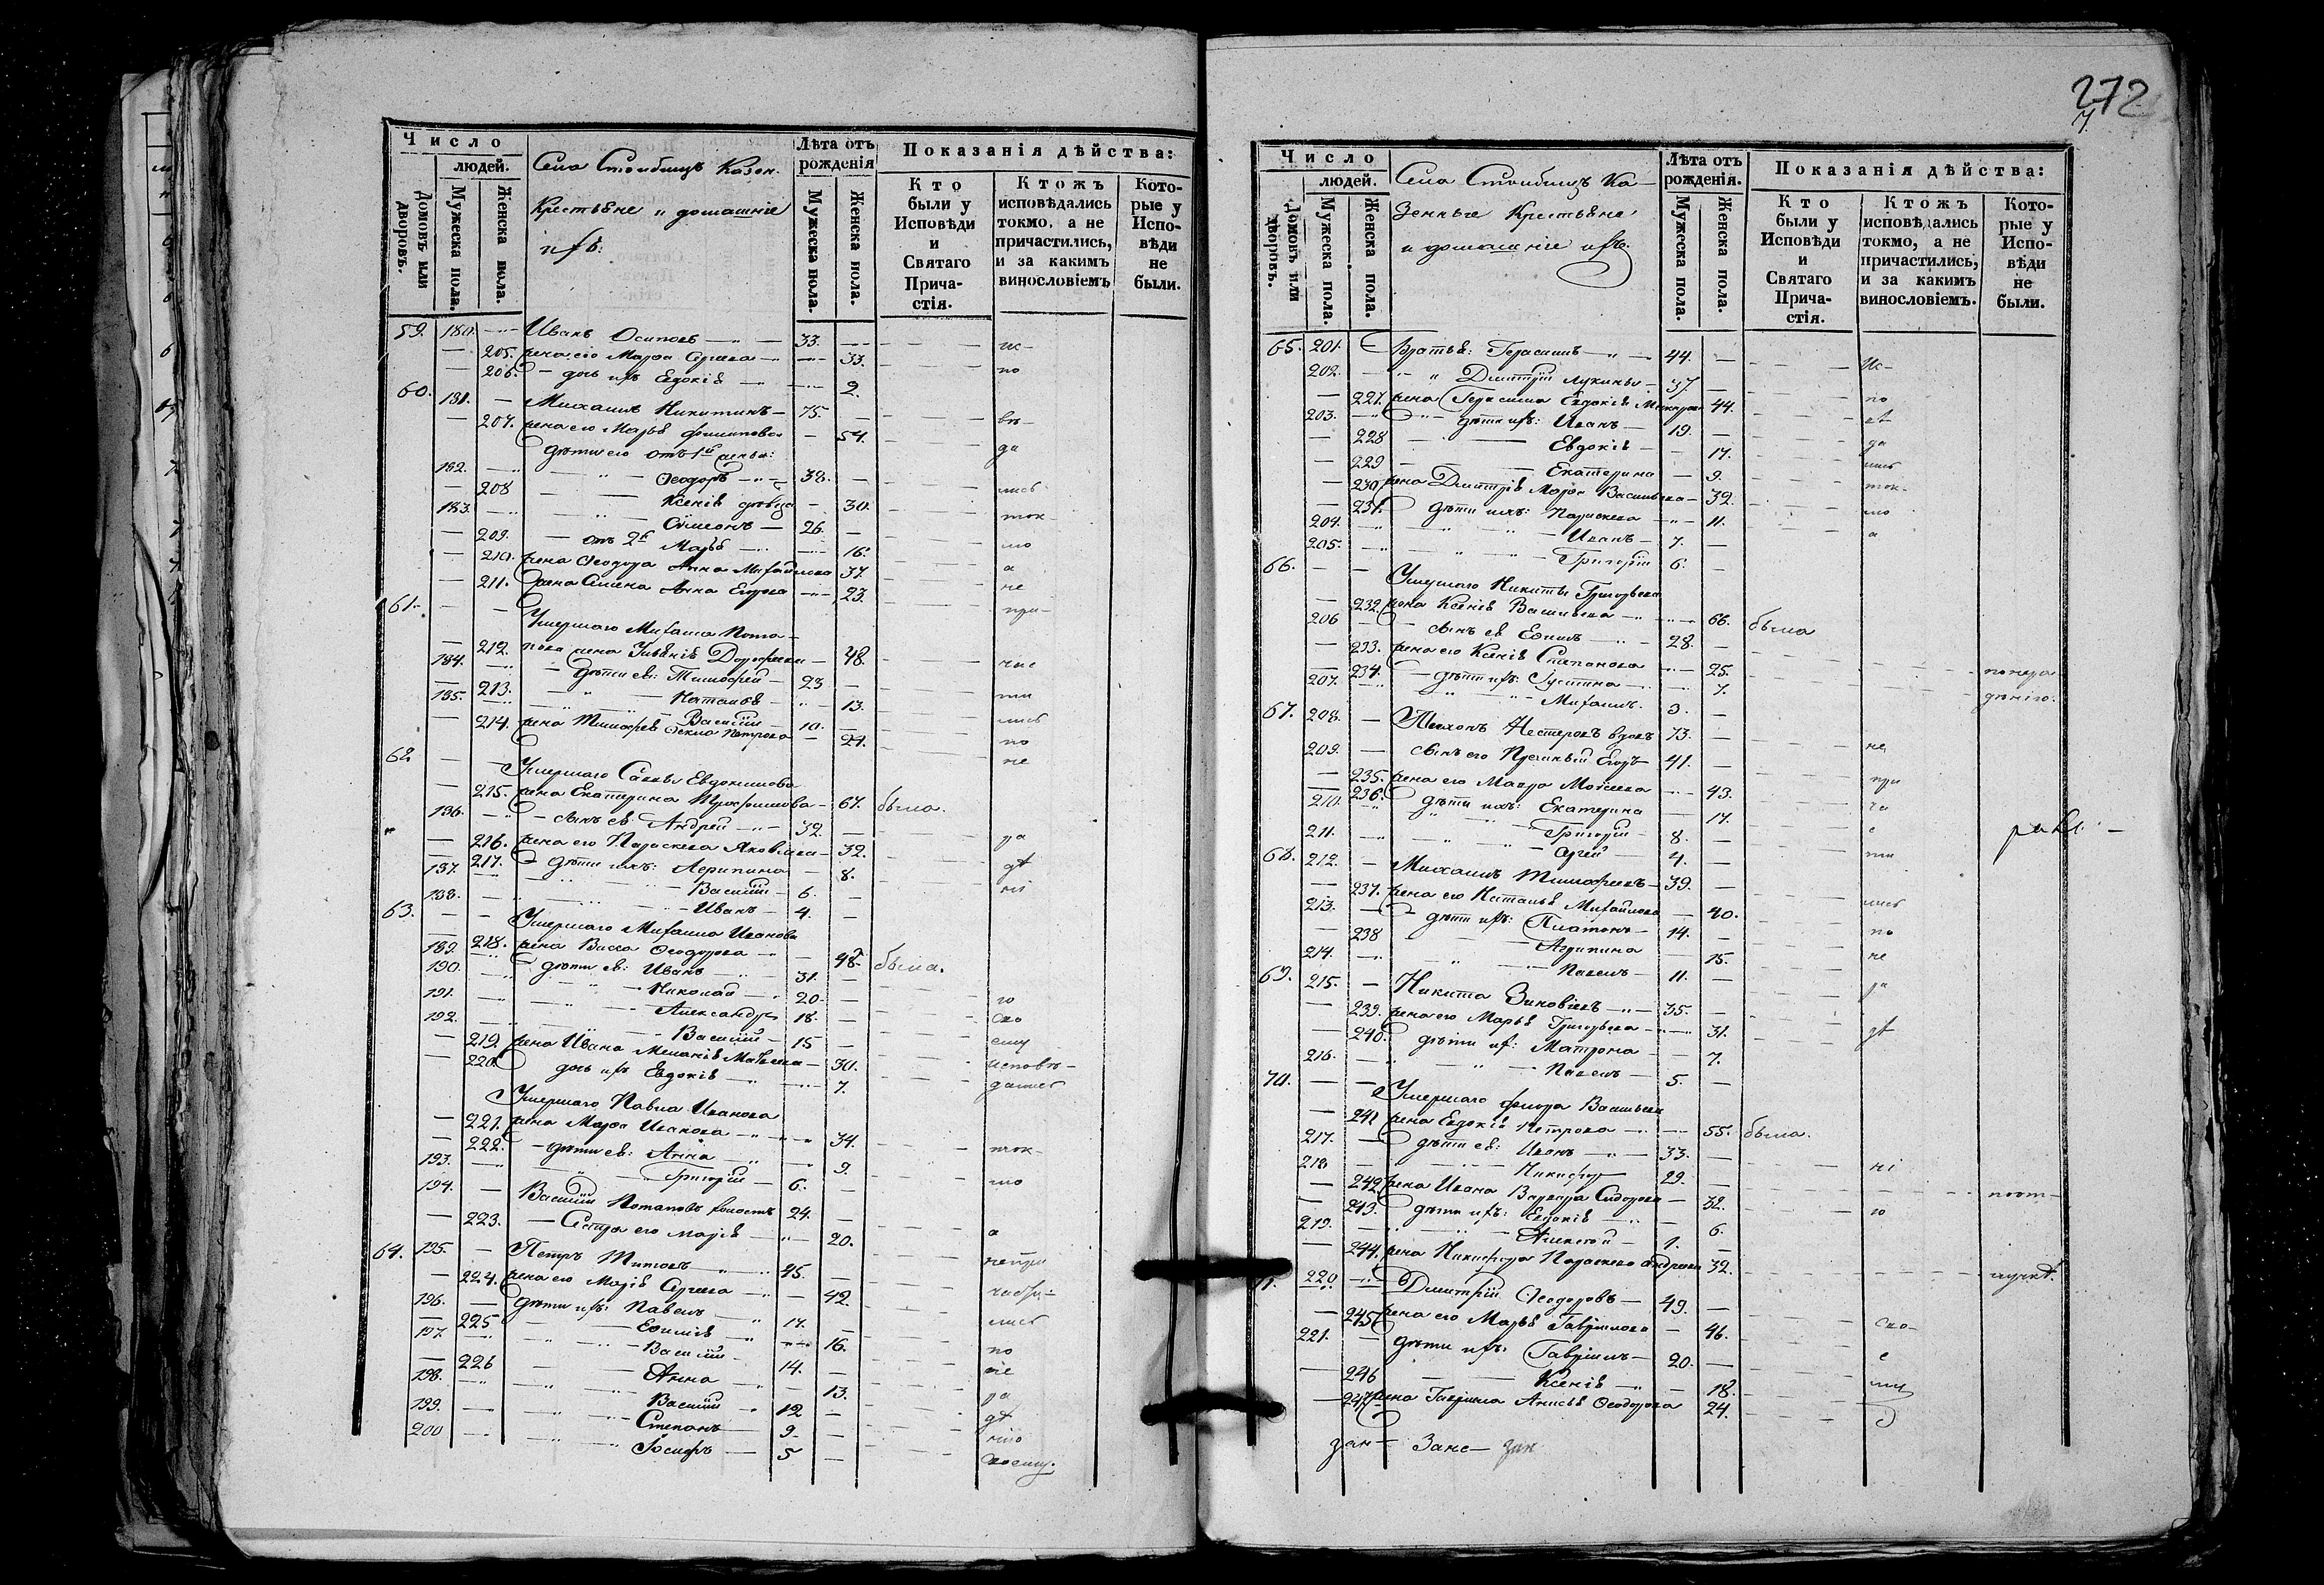 Число
людей.
Домовъ или дворовъ.
Мужеска пола.
Женска пола.
Села Столбищъ Казен.
Крестьяне и домашніе
ихъ:
Лѣта отъ рожденія
Мужеска пола.
Женска пола.
Показанія дѣйства:
Кто были у Исповѣди и Святаго Прича-стія.
Ктожъ исповѣдались токмо, а не причастились, и за какимъ винословіемъ
Кото-рые у Испо-вѣди не были.
59. 180. Иванъ Осиповъ 33. ис-
205. жена его Марѳа Сергѣева 33. по
206. дочь ихъ Евдокія 2.
60. 181. Михаилъ Никитинъ 75. вѣ-
207. жена его Марья Филиппова 54. да
дѣти его отъ 1й жены:
182. Ѳеодоръ 38. лись
208 Ксенія дѣвица 30. ток-
183. Симеонъ 26. мо
209. отъ 2й Марья 16. а
210. жена Ѳеодора Анна Михайлова 37. не
211. жена Симена Анна Егорова 23. при-
61. Умершаго Михаила Пота-
212. пова жена Улянія Дороѳеева 48. час
184. дѣти ея: Тимоѳей 23 ти
213. Наталья 13. лись
185. Василій 10. по
214. жена Тимоѳея Ѳекла Петрова 24. не
62 Умершаго Саввы Евдокимова
215. жена Екатерина Трофимова 67. была.
186. сынъ ея Андрей 32. ра
216. жена его Параскева Яковлева 32. дѣ
217. дѣти ихъ: Агрипина 8. ні
187. Василій 6.
188. Иванъ 4.
63. Умершаго Михаила Иванова
218. жена Васса Ѳеодорова 48. была.
189. дѣти ея: Иванъ 31. ю
190. Николай 20. сво
191. Александръ 18. ему
192. Василій 15 исповѣ-
219. жена Ивана Меланія Матвеева 30. дались
220. дочь ихъ Евдокія 7.
Умершаго Павла Иванова
221. жена Марѳа Иванова 34. ток-
222. дѣти ея: Анна 9. мо
193. Григорій 6.
194. Василій Потаповъ холостъ 24. а
223. Сестра его Марія 20. непри
64. 195. Петръ Титовъ 45.
224. жена его Марія Сергѣева 42. лись
196. дѣти ихъ: Павелъ 17. по
225 Евѳимія 16. не
197. Василій 14. ра
226 Анна 13. дѣ
198. Василій 12 нію
199. Степанъ 9. своему.
200 Іосифъ 5
272
Число
людей.
Домовъ или дворовъ.
Мужеска пола.
Женска пола.
Села Столбищъ Ка-
зенные Крестьяне
и домашніе ихъ.
Лѣта отъ рожденія.
Мужеска пола.
Женска пола.
Показанія дѣйства:
Кто были у Исповѣди и Святаго Прича-стія.
Ктожъ исповѣдались токмо, а не причастились, и за какимъ винословіемъ.
Кото-рые у Испо-вѣди не были.
65. 201. Братья: Герасимъ 44. Ис-
202. Дмитрій Лукины 37. по
227. жена Герасима Евдокія 44. вѣ
203. дѣти ихъ: Иванъ 19. да
228 Евдокія 17. лись
229 Екатерина 9. ток-
230 жена Дмитрія Марѳа Васильева 32. мо
231. дѣти ихъ: Параскева 11. а
204. Иванъ 7.
205. Григорій 6.
66. Умершаго Никиты Григорьева
232. жена Ксенія Васильева 66. была
206 сынъ ея Евѳимъ 28.
233. жена его Ксенія Степанова 25. понера-
234. дѣти ихъ: Іустина 7. дѣнію.
207. Михаилъ. 3.
67. 208. Тихонъ Нестеровъ вдовъ 73. не
209. сынъ его Егоръ 41. при
235. жена его Мавра Моисеева 43. ча
236. дѣти ихъ: Екатерина 17. с
210. Григорій 8. ти
211. Сергей 4.
68. 212. Михаилъ Тимоѳеевъ 39. лись
237. жена его Наталья Михайлова 40. по
213. дѣти ихъ: Платонъ 14. не
238 Агрипина 15. ра
214. Павелъ 11.
69. 215. Никита Зиновіевъ 35. дѣ
239. жена его Марья Григорьева 31.
240. дѣти их: Матрона 7.
216. Павелъ 5.
70. Умершаго Флора Васильева
241 жена Евдокія Петрова 55. была.
217. дѣти ея: Иванъ 33. ні
218 Никифоръ 29. поот-
242. жена Ивана Варвара Сидорова 32. ю
243. дѣти ихъ: Евдокія 6.
219. Алексѣй 1.
244. жена Никифора Параскева Андреева 32. лучкѣ.
71. 220. Дмитрій Ѳеодоровъ 49. сво-
245 жена его Марья Гавриилова 46. е
221. дѣти ихъ: Гавріилъ 20. му
246 Ксенія 18.
247 жена Гавріила Анисья Ѳеодорова 24.